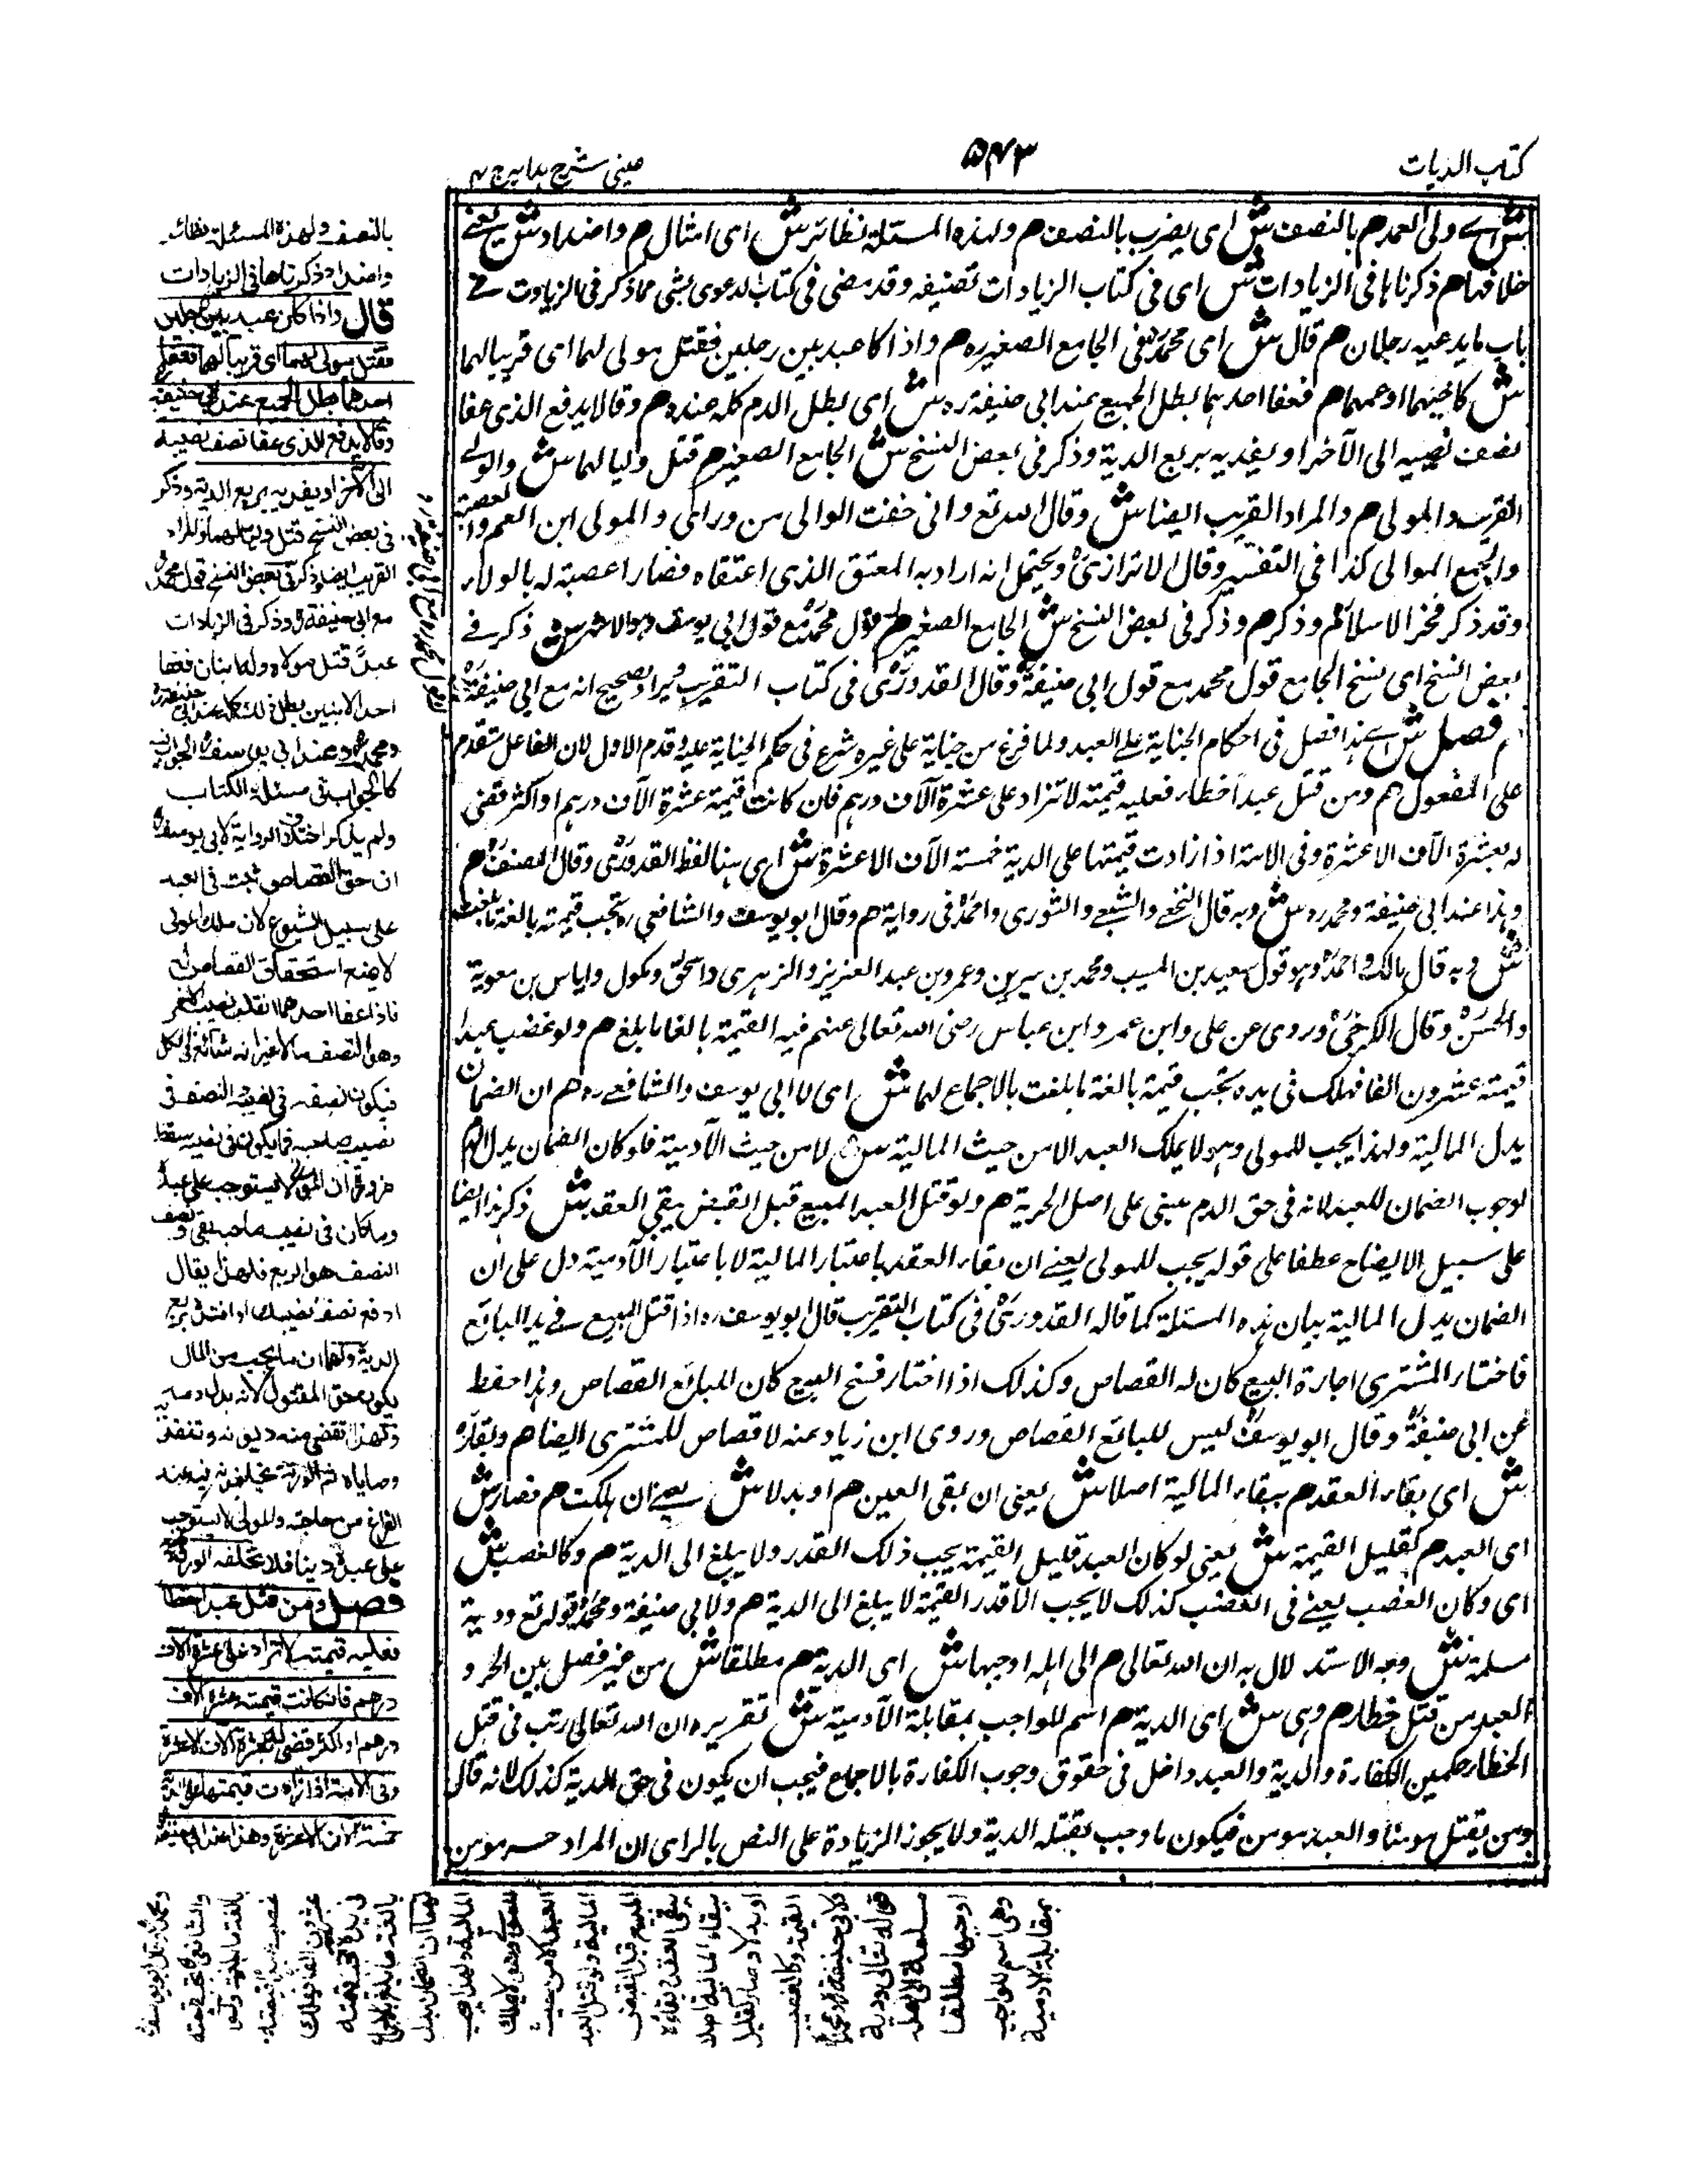 كتاب الديات
۵۴۳
عینی شرح ہدایہ ج ۴
ش اے ولی العمد م بالنصف ش ای یضرب بالنصف م ولہذہ المسئلۃ نظائر ش ای امثال م واضداد ش یعنے
خلافہا م ذکرناہا فی الزیادات ش ای فی کتاب الزیادات تصنیفہ وقد مضی فی کتاب الدعوی بشئ مما ذکر فی الزیادت فے
باب ما یدعیہ رجلان م قال ش ای محمدؒ فی الجامع الصغیر رہ م واذا کا عبد بین رجلین فقتل مولی لہما ای قریبا لہما
ش کاخیہما او عمہما م فعفا احدہما بطل الجمیع عند ابی حنیفۃ رہ ش ای بطل الدم کلہ عندہ م وقالا یدفع الذی عفا
نصف نصیبہ الی الآخر او یفدیہ بربع الدیۃ وذکر فی بعض النسخ ش الجامع الصغیر م قتل ولیا لہما ش والولے
القریب والمولی م والمراد القریب ایضا ش وقال اللہ تع وانی خفت الوالی من ورائی والمولی ابن العم والعصبۃ
والجمع الموالی کذا فی التفسیر وقال الاترازیؒ ویحتمل انہ اراد بہ المعتق الذی اعتقاہ فضارا عصبۃ لہ بالولاء
وقد ذکر فخر الاسلامؒ م وذکر م وذکر فی بعض النسخ ش الجامع الصغیر م قول محمدؒ مع قول ابی یوسف والاشہر ش ذکر فے
بعض النسخ ای نسخ الجامع قول محمد مع قول ابی حنیفۃؒ وقال القدوریؒ فی کتاب التقریب الصحیح انہ مع ابی حنیفۃؒ
م فصل ش اے ہذا فصل فی احکام الجنایۃ علے العبد ولما فرغ من جنایۃ علی غیرہ شرع فی حکم الجنایۃ علیہ وقدم الاول لان الفاعل متقدم
علی المفعول م ومن قتل عبدا خطاء فعلیہ قیمتہ لا تزاد علی عشرۃ الآف درہم فان کانت قیمتہ عشرۃ الآف درہم او اکثر قضی
لہ بعشرۃ الآف الا عشرۃ وفی الامۃ اذا زادت قیمتہا علی الدیۃ خمسۃ الآف الا عشرۃ ش ای ہنا لفظ القدوریؒ وقال المصنفؒ م
وہذا عند ابی حنیفۃ ومحمد رہ ش وبہ قال النخعے والشعبے والثوری واحمدؒ فی روایۃ م وقال ابو یوسف والشافعی رہ تجب قیمتہ بالغۃ ما بلغت
ش وبہ قال مالک واحمدؒ وہو قول سعید بن المسیب ومحمد بن سیرین وعمر بن عبد العزیز والزہری واسحٰق ومکول وایاس بن معویۃ
والحسنؒ وقال الکرخیؒ وروی عن علی وابن عمر وابن عباس رضی اللہ تعالی عنہم فیہ القیمۃ بالغا ما بلغ م ولو غصب عبدا
قیمتہ عشرون الفا فہلک فی یدہ تجب قیمۃ بالغۃ ما بلغت بالاجماع لہما ش ای لابی یوسف والشافعے رہ م ان الضمان
بدل المالیۃ ولہذا یجب للمولی وہو لا یملک العبد الا من حیث المالیۃ ش لا من حیث الآدمیۃ فلو کان الضمان بدل الدم
لوجوب الضمان للعبد لانہ فی حق الدم مبنی علی اصل الحریۃ م ولو قتل العبد المبیع قبل القبض یبقی العقد ش ذکر ہذا ایضا
علی سبیل الایضاح عطفا علی قولہ یجب للمولی یعنے ان بقاء العقد باعتبار المالیۃ لا باعتبار الآدمیۃ دل علی ان
الضمان بدل المالیۃ بیان ہذہ المسئلۃ کما قالہ القدوریؒ فی کتاب التقریب قال ابو یوسف رہ اذا قتل المبیع فے ید البائع
فاختار المشتری اجازۃ البیع کان لہ القصاص وکذلک اذا اختار فسخ البیع کان للبائع القصاص وہذا حفظ
عن ابی حنیفۃؒ وقال ابو یوسفؒ لیس للبائع القصاص وروی ابن زیاد عنہ لا قصاص للمشتری ایضا م وبقاؤہ
ش ای بقاء العقد م ببقاء المالیۃ اصلا ش یعنی ان بقی العین م او بدلا ش یعنے ان ہلکت م فصار ش
ای العبد م کقلیل القیمۃ ش یعنی لو کان العبد قلیل القیمۃ یجب ذلک القدر ولا یبلغ الی الدیۃ م وکالغصب ش
ای وکان الغصب یعنے فی الغصب کذلک لا یجب الا قدر القیمۃ لا یبلغ الی الدیۃ م ولابی حنیفۃ ومحمدؒ قولہ تع ودیۃ
مسلمۃ ش وجہ الاستدلال بہ ان اللہ تعالی م الی اہلہ اوجبہا ش ای الدیۃ م مطلقا ش من غیر فصل بین الحر و
العبد من قتل خطاء م وہی ش ای الدیۃ م اسم للواجب بمقابلۃ الآدمیۃ ش تقریرہ ان اللہ تعالی رتب فی قتل
الخطاء حکمین الکفارۃ والدیۃ والعبد داخل فی حقوق وجوب الکفارۃ بالاجماع فیجب ان یکون فی حق الدیۃ کذلک لانہ قال
ومن یقتل مومنا والعبد مومن فیکون ما وجب بقتلہ الدیۃ ولا یجوز الزیادۃ علی النص بالرای ان المراد حر مومن
بالنصف ولهذة المسئلة نظائر
واضداد ذكرناها فى الزيادات
قال واذا كان عبد بين رجلين
فقتل مولى لهما اى قريبا لهما فعفا
احدهما بطل الجميع عند ابى حنيفة
وقالا يدفع الذى عفا نصف نصيبه
الى الآخر او يفديه بربع الدية وذكر
فى بعض النسخ قتل وليا لهما والمراد
القريب ايضا وذكر فى بعض النسخ قول محمد
مع ابى حنيفة وذكر فى الزيادات
عبد قتل مولاه وله ابنان فعفا
احد الابنين بطل ذلك كله عند ابى حنيفة
ومحمد وعند ابى يوسف الجواب فيه
كالجواب فى مسئلة الكتاب
ولم يذكر اختلاف الرواية لابى يوسف
ان حق القصاص ثبت فى العبد
على سبيل الشيوع لان ملك المولى
لا يمنع استحقاق القصاص له
فاذا عفا احدهما انقلب نصيب الآخر
وهو النصف مالا غير انه شائع فى الكل
فيكون نصفه فى نصيبه والنصف فى
نصيب صاحبه فما يكون فى نصيبه سقط
ضرورة ان المولى لا يستوجب على عبده
وما كان فى نصيب صاحبه بقى ونصف
النصف هو الربع فلهذا يقال
ادفع نصف نصيبك او افتده بربع
الدية ولهما ان ما يجب من المال
يكون حق المقتول لانه بدل دمه
ولهذا تقضى منه ديونه وتنفذ
وصاياه ثم الورثة يخلفونه فيه عند
الفراغ من حاجته والمولى لا يستوجب
على عبده دينا فلا تخلفه الورثة فيه
فصل ومن قتل عبدا خطأ
فعليه قيمته لا تزاد على عشرة الاف
درهم فان كانت قيمته عشرة الاف
درهم او اكثر قضى له بعشرة آلاف الا عشرة
وفى الامة اذا زادت قيمتها على الدية
خمسة آلاف الا عشرة وهذا عند ابى حنيفة
ومحمد وقال ابو يوسف
والشافعى تجب قيمته
بالغة ما بلغت ولو
غصب عبدا قيمته
عشرون الفا فهلك
فى يده تجب قيمته
بالغة ما بلغت بالاجماع
لهما ان الضمان بدل
المالية ولهذا يجب
للمولى وهو لا يملك
العبد الا من حيث
المالية ولو قتل العبد
المبيع قبل القبض
يبقى العقد وبقاؤه
ببقاء المالية اصلا
او بدلا وصار كقليل
القيمة وكالغصب
ولابى حنيفة ومحمد
قوله تعالى ودية
مسلمة الى اهله
اوجبها مطلقا
وهى اسم للواجب
بمقابلة الآدمية